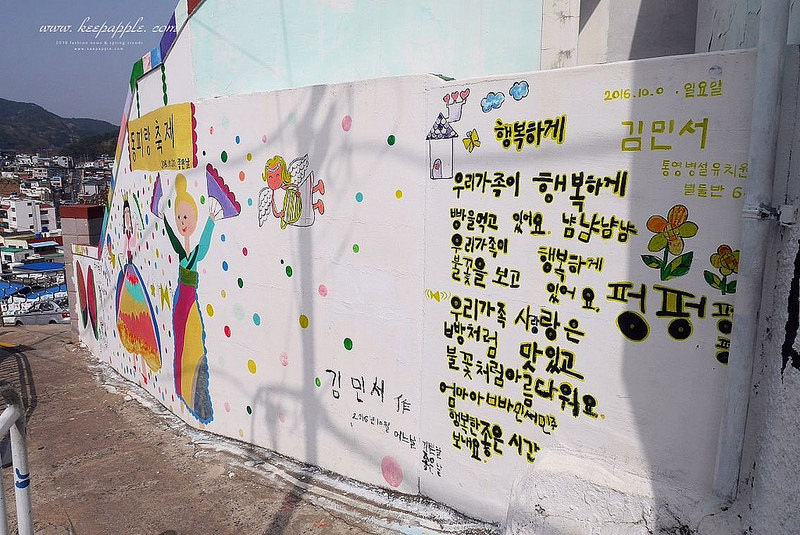 www.keepapple.com
www.keepapple.com
동피랑 축제
2016.10.0 . 일요일
행복하게
김민서
통영병설유치원
별돌반 6
우리가족이 행복하게
빵을먹고 있어요. 냠냠냠냠
우리가족이 행복하게
불꽃을 보고 있어요.
펑펑펑
우리가족 사랑은
빵처럼 맛있고
불꽃처럼아름다워요.
엄마아빠민서민준
행복한좋은 시간
보내요.
김민서 作
2016년10월 어느날